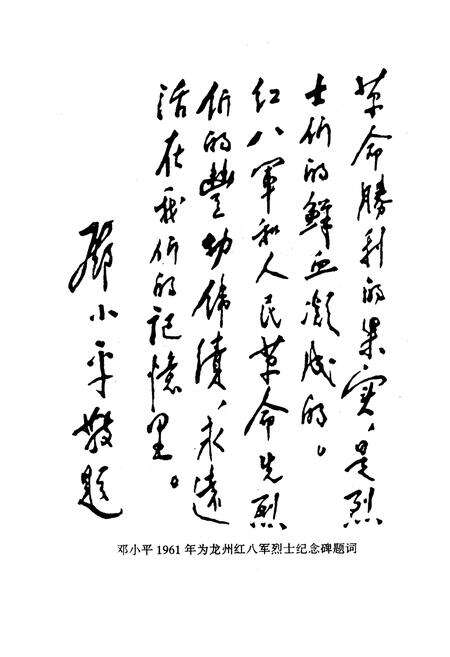 革命勝利的果实，是烈
士们的鲜血凝成的。
红八軍和人民革命先烈
们的豐功偉績，永遠
活在我们的記憶里。
鄧小平敬题
邓小平1961年为龙州红八军烈士纪念碑题词